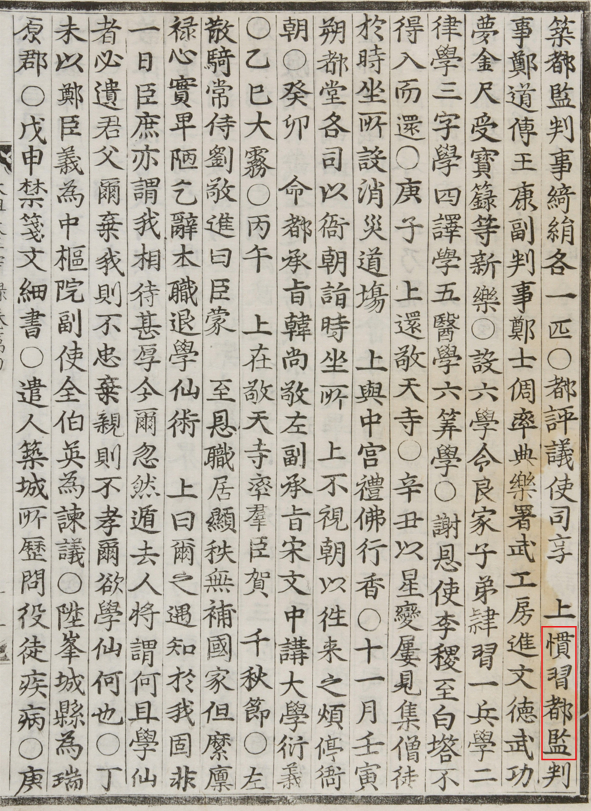 築都監判事綺絹各一匹○都評議使司享　上慣習都監判
事鄭道傳王康副判事鄭士倜率典樂署武工房進文德武功
夢金尺受寶籙等新樂○設六學令良家子弟肄習一兵學二
律學三字學四譯學五醫學六筭學○謝恩使李稷至白塔不
得入而還○庚子　上還敬天寺○辛丑以星變屢見集僧徒
於時坐所設消災道塲　上與中宮禮佛行香○十一月壬寅
朔都堂各司以衙朝詣時坐所　上不視朝以徃来之煩停衙
朝○癸卯　命都承旨韓尚敬左副承旨宋文中講大學衍義
○乙巳大霧○丙午　上在敬天寺率羣臣賀　千秋節○左
散騎常侍劉敬進曰臣蒙　至恩職居顯秩無補國家但縻廪
禄心實卑陋乞辭本職退學仙術　上曰爾之遇知於我固非
一日臣庶亦謂我相待甚厚今爾忽然遁去人將謂何且學仙
者必遺君父爾棄我則不忠棄親則不孝爾欲學仙何也○丁
未以鄭臣義為中樞院副使全伯英為諫議○陞峯城縣為瑞
原郡○戊申禁箋文細書○遣人築城所歷問役徒疾病○庚